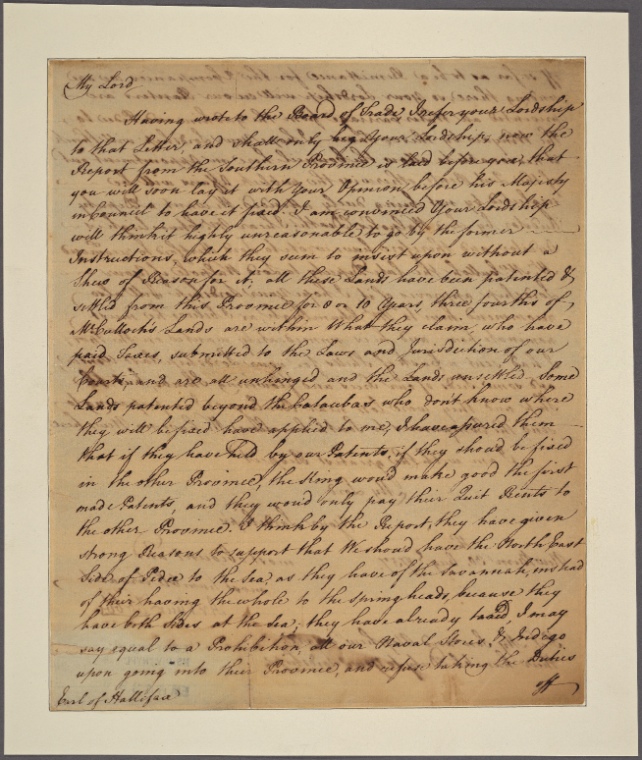 My Lord
Having wrote to the Board of Trade I refer your Lordship
to that Letter and shall only beg Your Lordship, now the
Report from the Southern Province is laid before you, that
you will soon lay it with your Opinion before his Majesty
in Councill to have it fixed. I am convinced Your Lordship
will think it highly unreasonable to go by the former
Instructions, which they seem to insist upon without a
Shew of Reason for it; all these Lands have been patented &
settled from this Province for 8 or 10 Years, three fourths of
McCullochs Lands are within What they claim, who have
paid Taxes, submitted to the Laws and Jurisdiction of our
Courts, and are all unhinged and the Lands unsettled. Some
Lands patented beyond the Catawbas who don't know where
they will be fixed have applied to me, I have assured them
that if they have held by our Patents, if they shoud be fixed
in the other Province, the King woud make good the first
made Patents, and they woud only pay their Quit Rents to
the other Province. I think by the Report, they have given
strong Reasons to support that We shoud have the North East
Side of Pedee to the Sea, as they have of the Savannah, instead
of their having the whole to the Spring heads, because they
have both Sides at the Sea; they have already taxed, I may
say equal to a Prohibition, all our Naval Stores, & Indego
upon going into their Province, and refuse taking the Duties
off
Earl of Hallifax